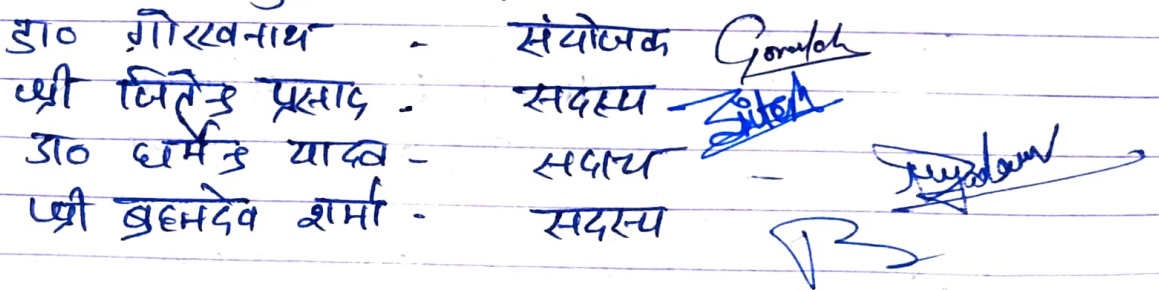 डा० गोरखनाथ - संयोजक Gorakh
श्री जितेन्द्र प्रसाद - सदस्य - Jitend
डा० धर्मेन्द्र यादव - सदस्य -
श्री ब्रह्मदेव शर्मा - सदस्य